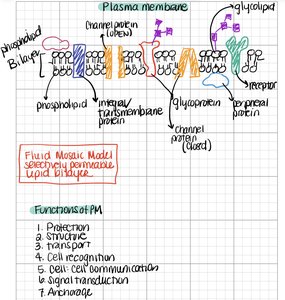 Plasma membrane
Channel protein
(OPEN)
glycolipid
phospholipid
Bilayer
receptor
phospholipid
integral/
transmembrane
protein
glycoprotein
peripheral
protein
channel
protein
(closed)
Fluid Mosaic Model
selectively permeable
lipid bilayer
Functions of PM
1. Protection
2. Structure
3. transport
4. Cell recognition
5. Cell: Cell communication
6. Signal transduction
7. Anchorage